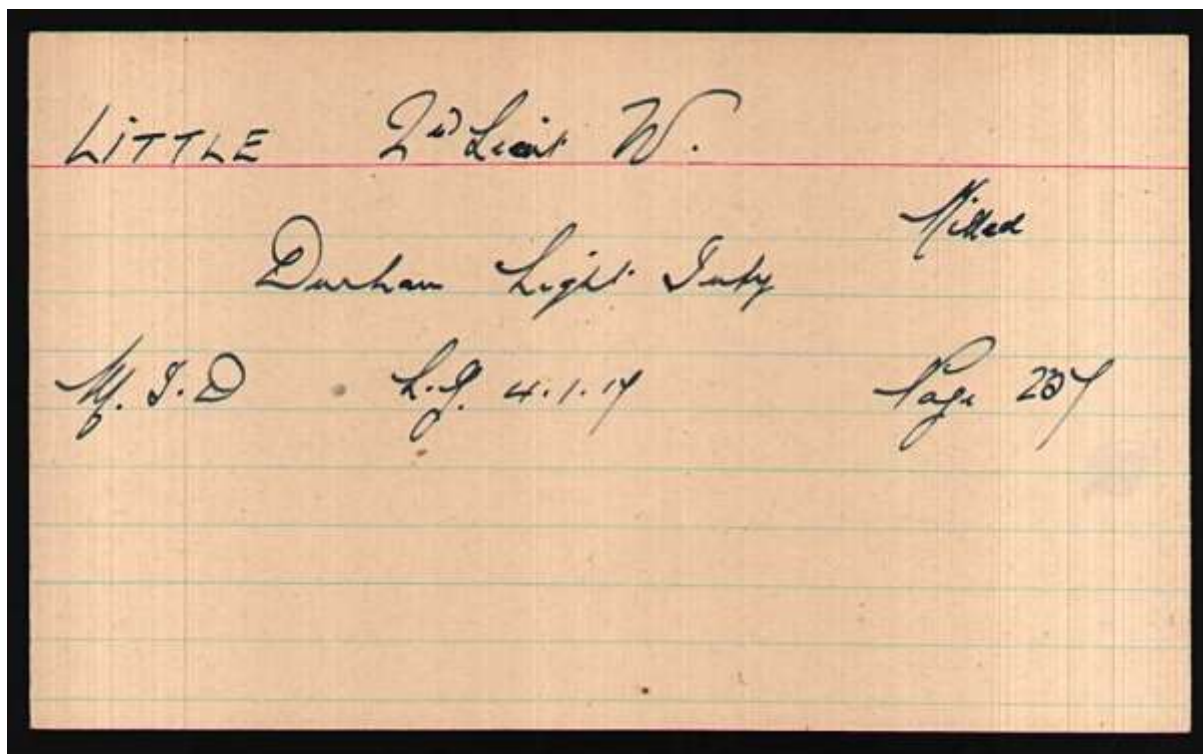 LITTLE 2nd Lieut W.
Killed
Durham Light Infty
M.I.D L.G. 4.1.17 Page 257